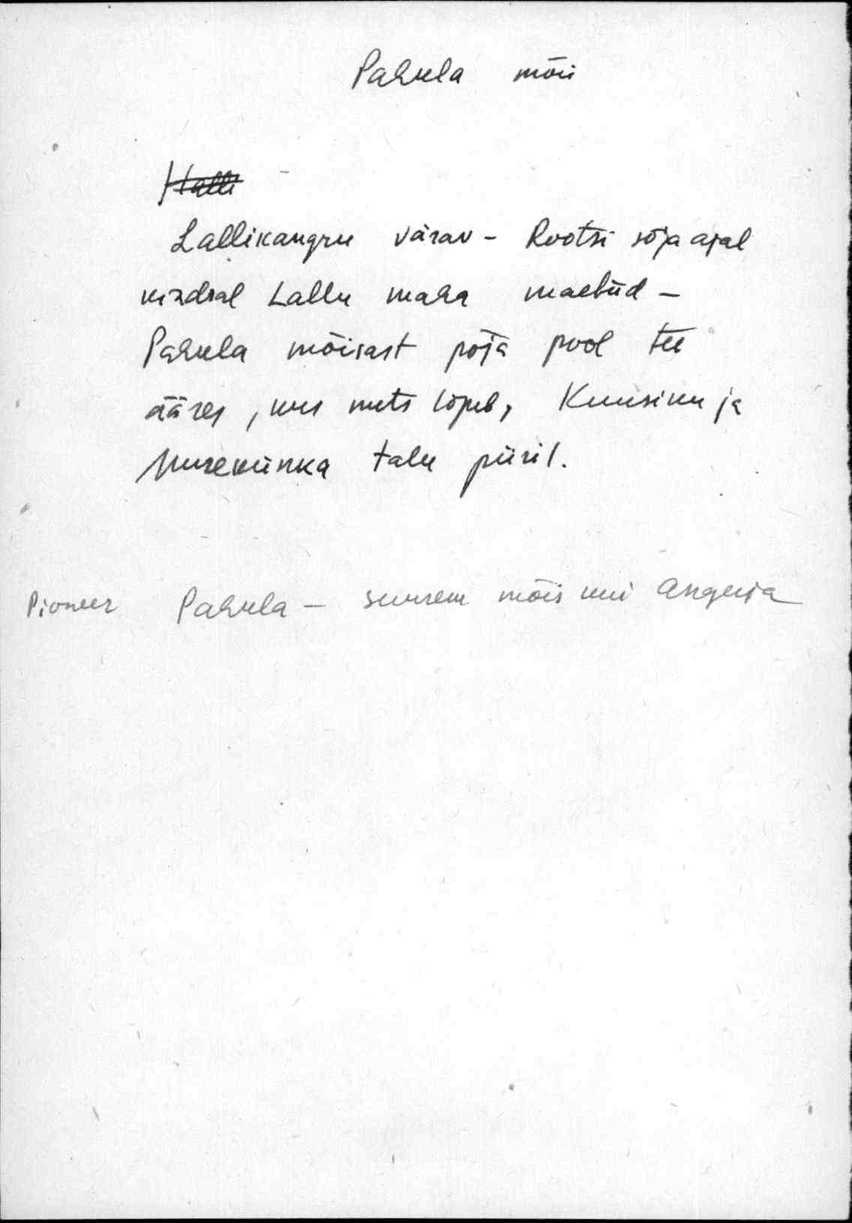 Pahkla mõis
Halli
Lallikangru värav - Rootsi sõja ajal
kindral Lallu maha maetud -
Pahkla mõisast põhja pool tee
ääres, kus mets lõpeb, Kuusiku ja
talu piiril.
Pioneer Pahkla - suurem mõis kui Angerja